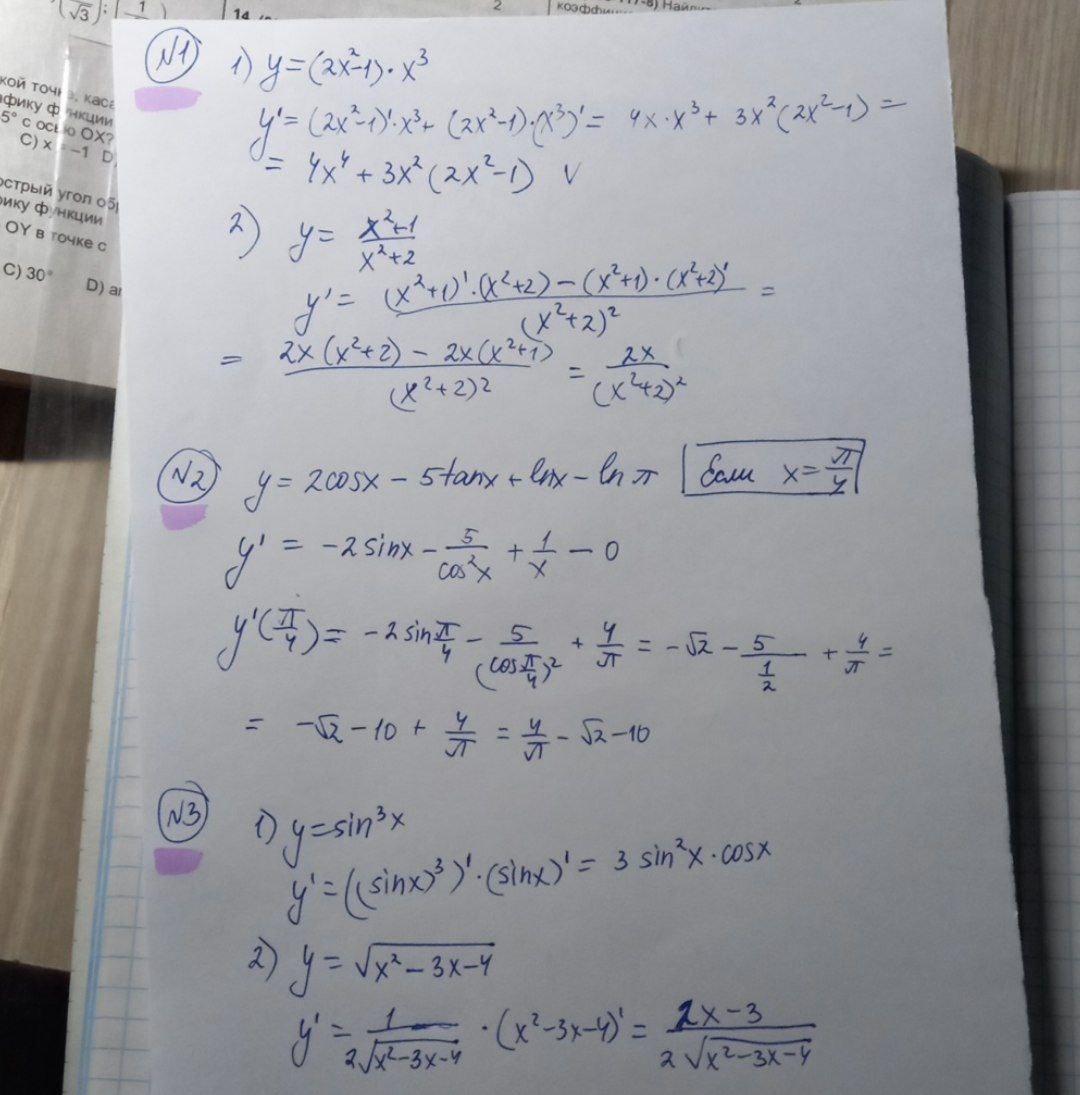 (√3);
14
2
коэффи
кой точке, каса
афику функции
5° с осью OX?
C) x = -1 D
острый угол об
рику функции
OY в точке с
C) 30° D) ar
№1
1) y = (2x²-1)·x³
y' = (2x²-1)'·x³ + (2x²-1)·(x³)' = 4x·x³ + 3x²(2x²-1) =
= 4x⁴ + 3x²(2x²-1) V
2) y = (x²+1)/(x²+2)
y' = ((x²+1)'·(x²+2) - (x²+1)·(x²+2)')/(x²+2)² =
= (2x(x²+2) - 2x(x²+1))/(x²+2)² = 2x/(x²+2)²
№2 y = 2cosx - 5tanx + lnx - ln π Если x = π/4
y' = -2sinx - 5/cos²x + 1/x - 0
y'(π/4) = -2sin π/4 - 5/(cos π/4)² + 4/π = -√2 - 5/(1/2) + 4/π =
= -√2 - 10 + 4/π = 4/π - √2 - 10
№3 1) y = sin³x
y' = ((sinx)³)'·(sinx)' = 3 sin²x·cosx
2) y = √(x² - 3x - 4)
y' = 1/(2√(x²-3x-4)) · (x²-3x-4)' = (2x-3)/(2√(x²-3x-4))